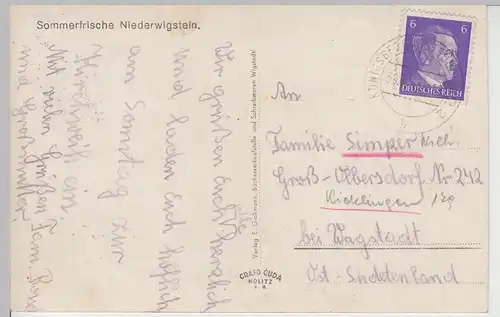 Sommerfrische Niederwigstein.
Wir grüßen Euch alle herzlich
und laden Euch höflich
am Sonntag zur
Kirchweih ein.
Mit vielen Grüßen Fam.
und Großmutter
Verlag E. Großmann, Bücherverkaufsstelle und Schreibwaren Wigstadtl
GRAFO ČUDA
HOLITZ
6 6
DEUTSCHES REICH
An
Familie Simper
Groß-Olbersdorf Nr 242
bei Wagstadt
Ost-Sudetenland